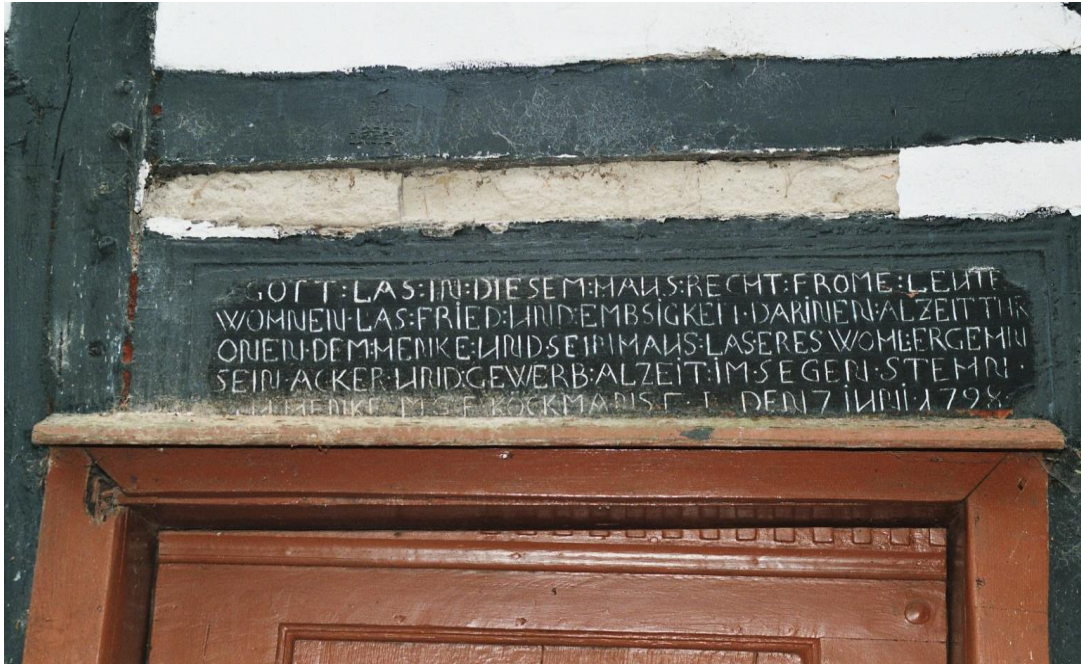 GOTT:LAS:IN:DIESEM:HAUS:RECHT:FROME:LEUTE
WOHNEN·LAS:FRIED:UND:EMBSIGKEIT·DARINEN·ALZEIT THR
ONEN·DEM:HENKE:UND·SEIN HAUS·LAS ERES WOHL:ERGEHN
SEIN·ACKER·UND:GEWERB:ALZEIT:IM·SEGEN·STEHN·
HENKE M·S·F KÖCKMANS DEN 7 IUNI·1798·